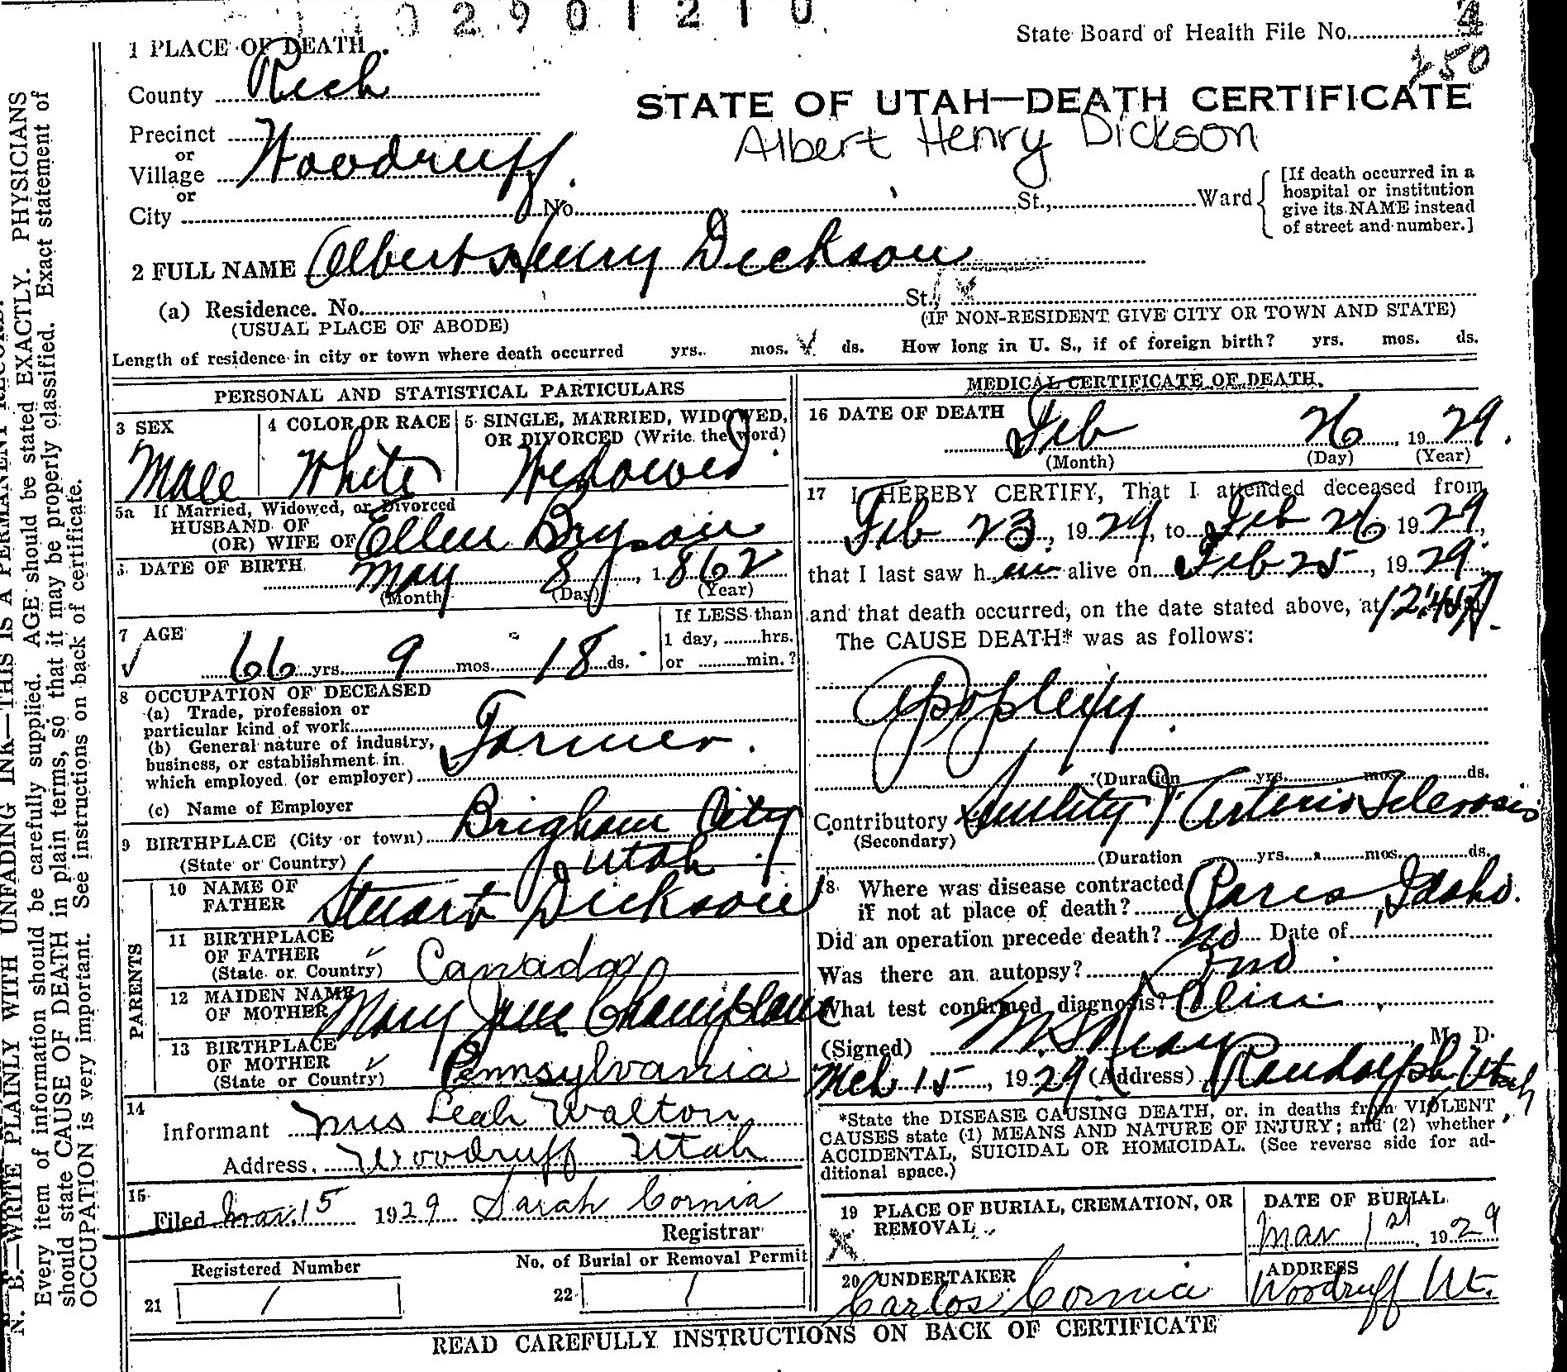 0 2 9 0 1 2 1 0
State Board of Health File No. 4
250
1 PLACE OF DEATH
County Rich
STATE OF UTAH—DEATH CERTIFICATE
Precinct
or
Village Woodruff
or
Albert Henry Dickson
City No. St., Ward
[If death occurred in a
hospital or institution
give its NAME instead
of street and number.]
2 FULL NAME Albert Henry Dickson
(a) Residence. No. St.,
(USUAL PLACE OF ABODE) (IF NON-RESIDENT GIVE CITY OR TOWN AND STATE)
Length of residence in city or town where death occurred yrs. mos. ds. How long in U. S., if of foreign birth? yrs. mos. ds.
PERSONAL AND STATISTICAL PARTICULARS
3 SEX
Male
4 COLOR OR RACE
White
5 SINGLE, MARRIED, WIDOWED,
OR DIVORCED (Write the word)
Widowed
5a If Married, Widowed, or Divorced
HUSBAND OF
(OR) WIFE OF Ellen Bryson
DATE OF BIRTH May 8, 1862
(Month) (Day) (Year)
7 AGE
66 yrs. 9 mos. 18 ds.
If LESS than
1 day, hrs.
or min.?
8 OCCUPATION OF DECEASED
(a) Trade, profession or
particular kind of work Farmer.
(b) General nature of industry,
business, or establishment in
which employed (or employer)
(c) Name of Employer
9 BIRTHPLACE (City or town) Brigham City
(State or Country) Utah
PARENTS
10 NAME OF
FATHER Stuart Dickson
11 BIRTHPLACE
OF FATHER
(State or Country) Canada
12 MAIDEN NAME
OF MOTHER Mary Jane
13 BIRTHPLACE
OF MOTHER
(State or Country) Pennsylvania
14
Informant Mrs Leah Walton
Address, Woodruff Utah
15
Filed Mar. 15 1929 Sarah Cornia
Registrar
Registered Number
21 1
No. of Burial or Removal Permit
22 1
MEDICAL CERTIFICATE OF DEATH.
16 DATE OF DEATH Feb 26, 1929.
(Month) (Day) (Year)
17 I HEREBY CERTIFY, That I attended deceased from
Feb 23, 1929, to Feb 26 1929,
that I last saw him alive on Feb 25, 1929
and that death occurred, on the date stated above, at
The CAUSE DEATH* was as follows:
Apoplexy
(Duration yrs. mos. ds.
Contributory Senility & Arterio Sclerosis
(Secondary)
(Duration yrs. mos. ds.
18. Where was disease contracted
if not at place of death? Paris, Idaho.
Did an operation precede death? No Date of
Was there an autopsy? no.
What test confirmed diagnosis? Clin
(Signed) M. D.
Mch 15, 1929 (Address) Randolph Utah
*State the DISEASE CAUSING DEATH, or, in deaths from VIOLENT
CAUSES state (1) MEANS AND NATURE OF INJURY; and (2) whether
ACCIDENTAL, SUICIDAL OR HOMICIDAL. (See reverse side for ad-
ditional space.)
19 PLACE OF BURIAL, CREMATION, OR
REMOVAL
DATE OF BURIAL
Mar 1st, 1929
20 UNDERTAKER
Carlos Cornia
ADDRESS
Woodruff Ut.
READ CAREFULLY INSTRUCTIONS ON BACK OF CERTIFICATE
N. B.—WRITE PLAINLY WITH UNFADING INK—THIS IS A PERMANENT RECORD.
Every item of information should be carefully supplied. AGE should be stated EXACTLY. PHYSICIANS
should state CAUSE OF DEATH in plain terms, so that it may be properly classified. Exact statement of
OCCUPATION is very important. See instructions on back of certificate.